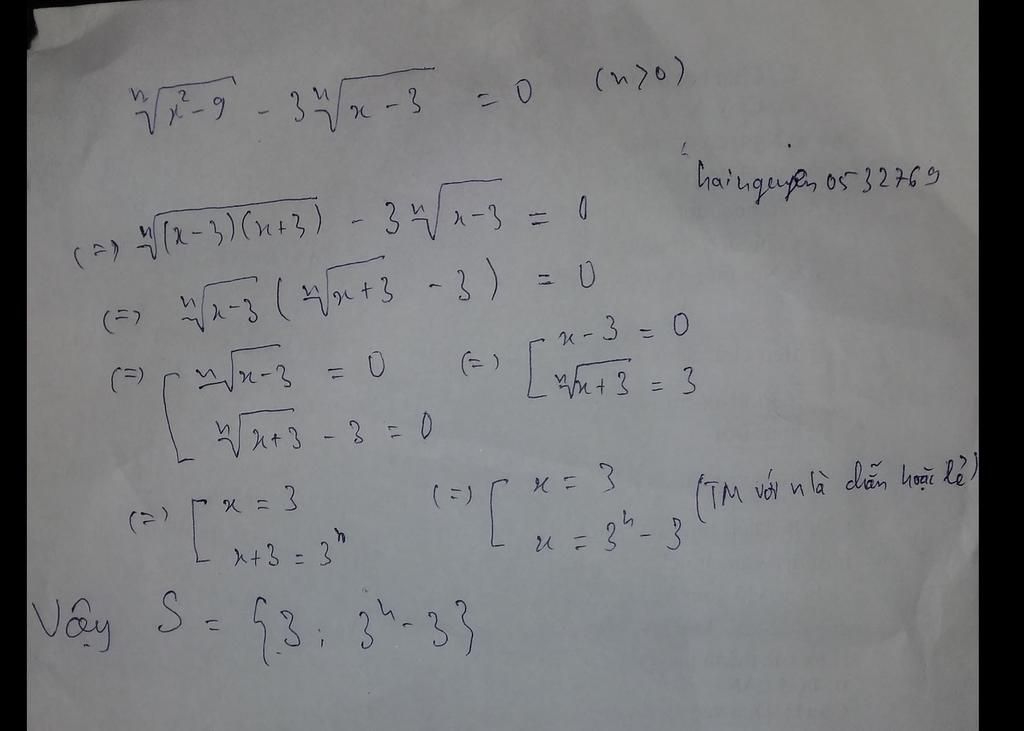 ⁿ√(x²-9) - 3ⁿ√(x-3) = 0 (n>0)
hainguyen0532769
(=) ⁿ√((x-3)(x+3)) - 3ⁿ√(x-3) = 0
(=) ⁿ√(x-3) (ⁿ√(x+3) - 3) = 0
(=) [ ⁿ√(x-3) = 0 (=) [ x-3 = 0
ⁿ√(x+3) - 3 = 0 ⁿ√(x+3) = 3
(=) [ x = 3 (=) [ x = 3 (TM với n là chẵn hoặc lẻ)
x+3 = 3ⁿ x = 3ⁿ - 3
Vậy S = {3; 3ⁿ-3}